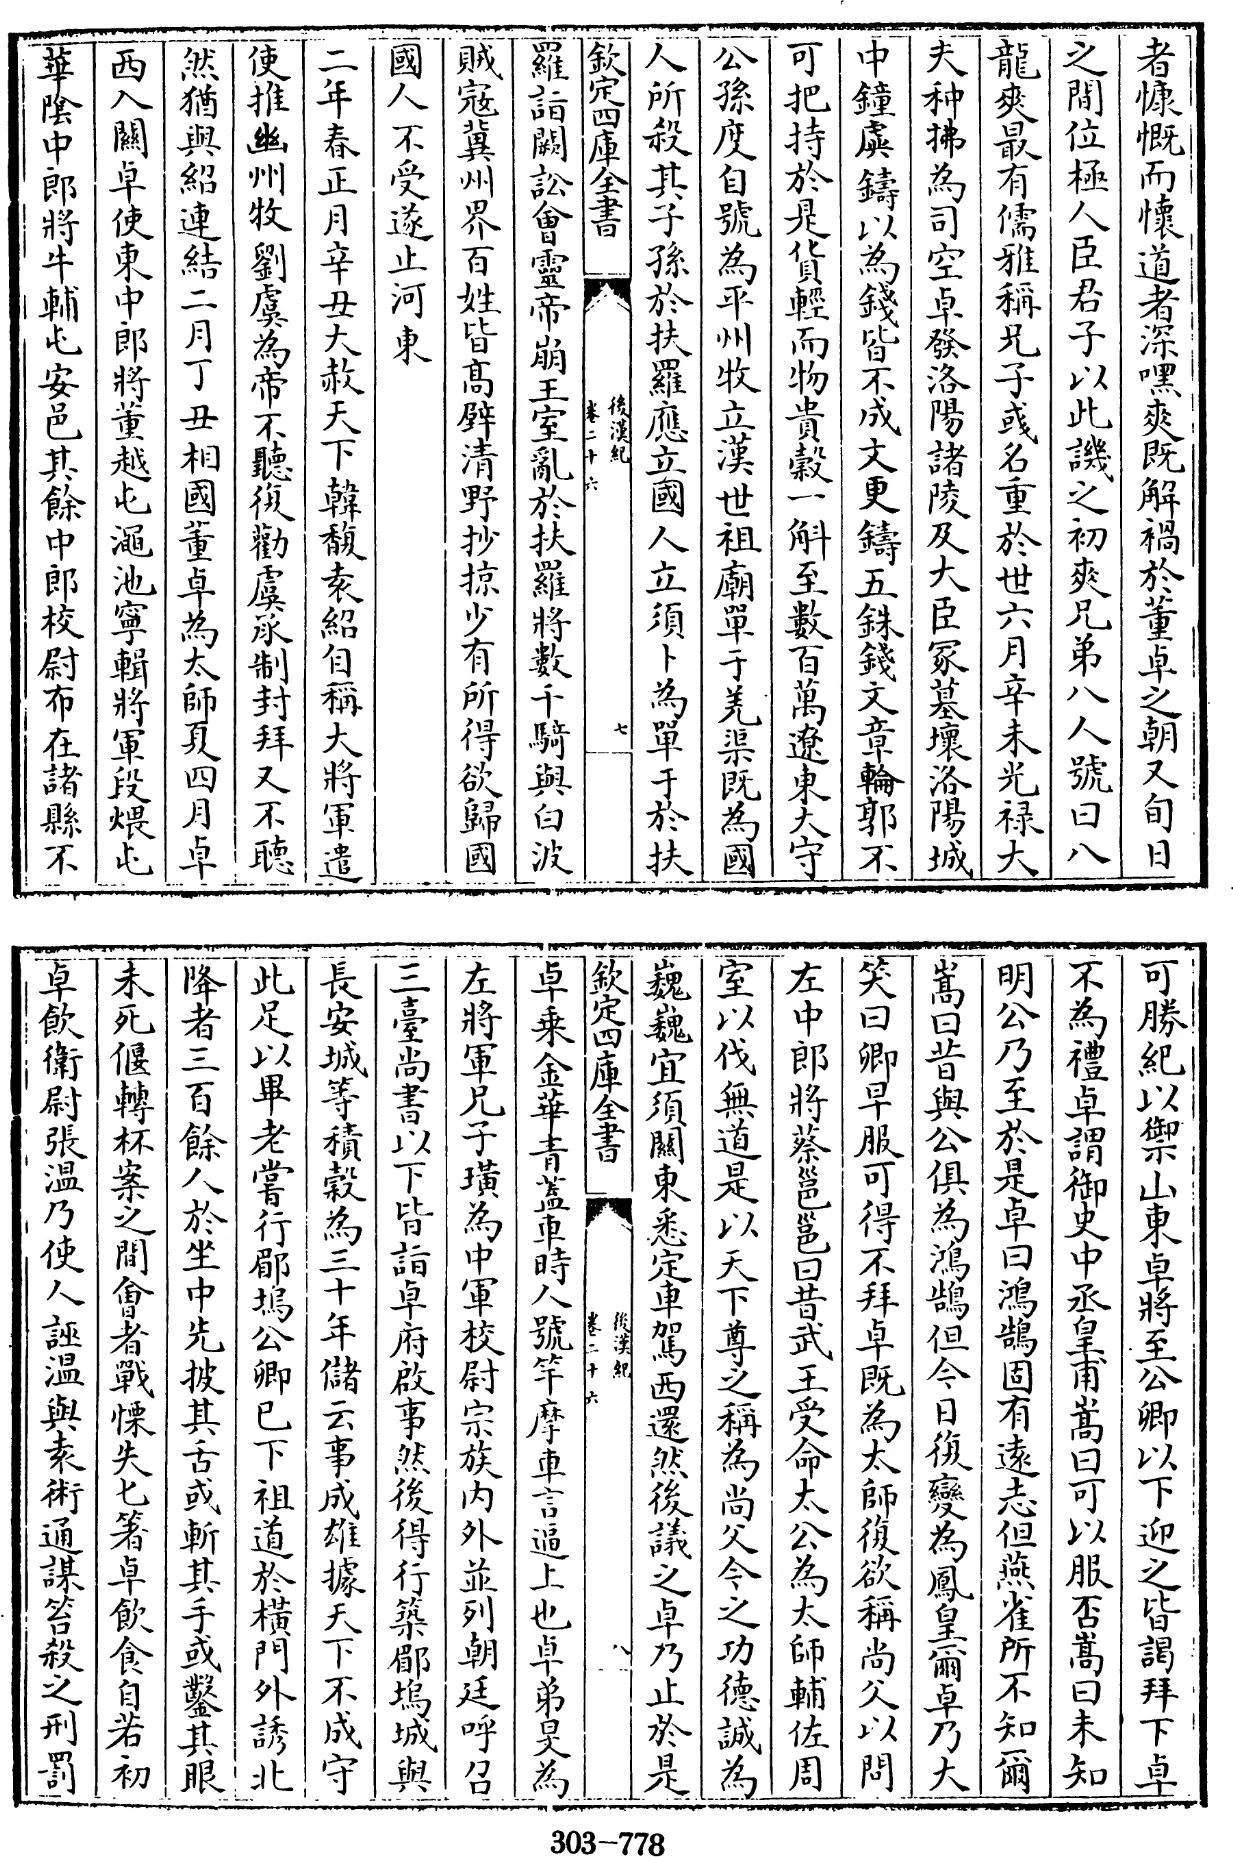 者慷慨而懷道者深嘿爽既解禍於董卓之朝又旬日
之間位極人臣君子以此譏之初爽兄弟八人號曰八
龍爽最有儒雅稱兄子彧名重於世六月辛未光禄大
夫种拂為司空卓發洛陽諸陵及大臣冢墓壞洛陽城
中鐘虡鑄以為錢皆不成文更鑄五銖錢文章輪郭不
可把持於是貨輕而物貴穀一斛至數百萬遼東太守
公孫度自號為平州牧立漢世祖廟單于羌渠既為國
人所殺其子孫於扶羅應立國人立須卜為單于於扶
欽定四庫全書
後漢紀
卷二十六
七
羅詣闕訟會靈帝崩王室亂於扶羅將數千騎與白波
賊寇冀州界百姓皆高壁清野抄掠少有所得欲歸國
國人不受遂止河東
二年春正月辛丑大赦天下韓馥袁紹自稱大將軍遣
使推幽州牧劉虞為帝不聽復勸虞承制封拜又不聽
然猶與紹連結二月丁丑相國董卓為太師夏四月卓
西入關卓使東中郎將董越屯澠池寧輯將軍段煨屯
華陰中郎將牛輔屯安邑其餘中郎校尉布在諸縣不
可勝紀以禦山東卓將至公卿以下迎之皆謁拜下卓
不為禮卓謂御史中丞皇甫嵩曰可以服否嵩曰未知
明公乃至於是卓曰鴻鵠固有遠志但燕雀所不知爾
嵩曰昔與公俱為鴻鵠但今日復變為鳳皇爾卓乃大
笑曰卿早服可得不拜卓既為太師復欲稱尚父以問
左中郎將蔡邕邕曰昔武王受命太公為太師輔佐周
室以伐無道是以天下尊之稱為尚父今之功德誠為
巍巍宜須關東悉定車駕西還然後議之卓乃止於是
欽定四庫全書
後漢紀
卷二十六
八
卓乘金華青蓋車時人號竿摩車言逼上也卓弟旻為
左將軍兄子璜為中軍校尉宗族内外並列朝廷呼召
三臺尚書以下皆詣卓府啟事然後得行築郿塢城與
長安城等積穀為三十年儲云事成雄據天下不成守
此足以畢老嘗行郿塢公卿已下祖道於橫門外誘北
降者三百餘人於坐中先披其舌或斬其手或鑿其眼
未死偃轉杯案之間會者戰慄失匕箸卓飲食自若初
卓飲衛尉張温乃使人誣温與袁術通謀笞殺之刑罰
303-778